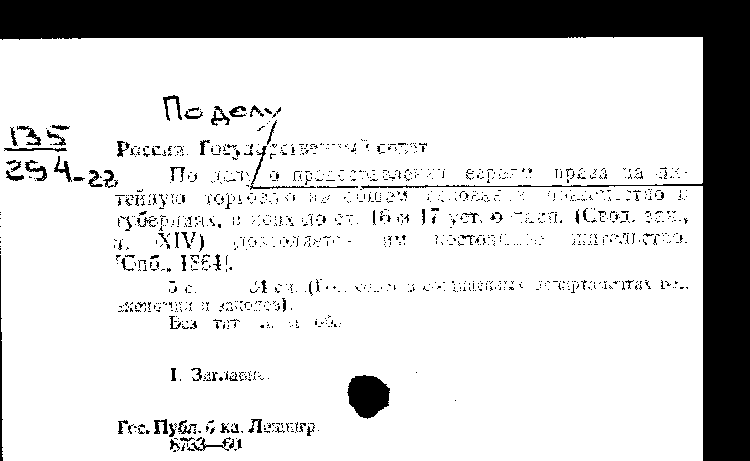 По делу
135
254-22
Россия. Государственный совет
По делу о предоставлении евреям права на пи-
тейную торговлю на общем основании
губерниях, в коих по ст. 16 и 17 уст. о пасп. (Свод. зак.,
т. XIV) дозволяется им постоянное жительство.
[Спб., 1864].
5 с. 31 см. (Гос. совет в соединенных департаментах
экономии и законов).
Без тит. л. и обл.
I. Заглавие.
Гос. Публ. б-ка. Ленингр.
8733—60